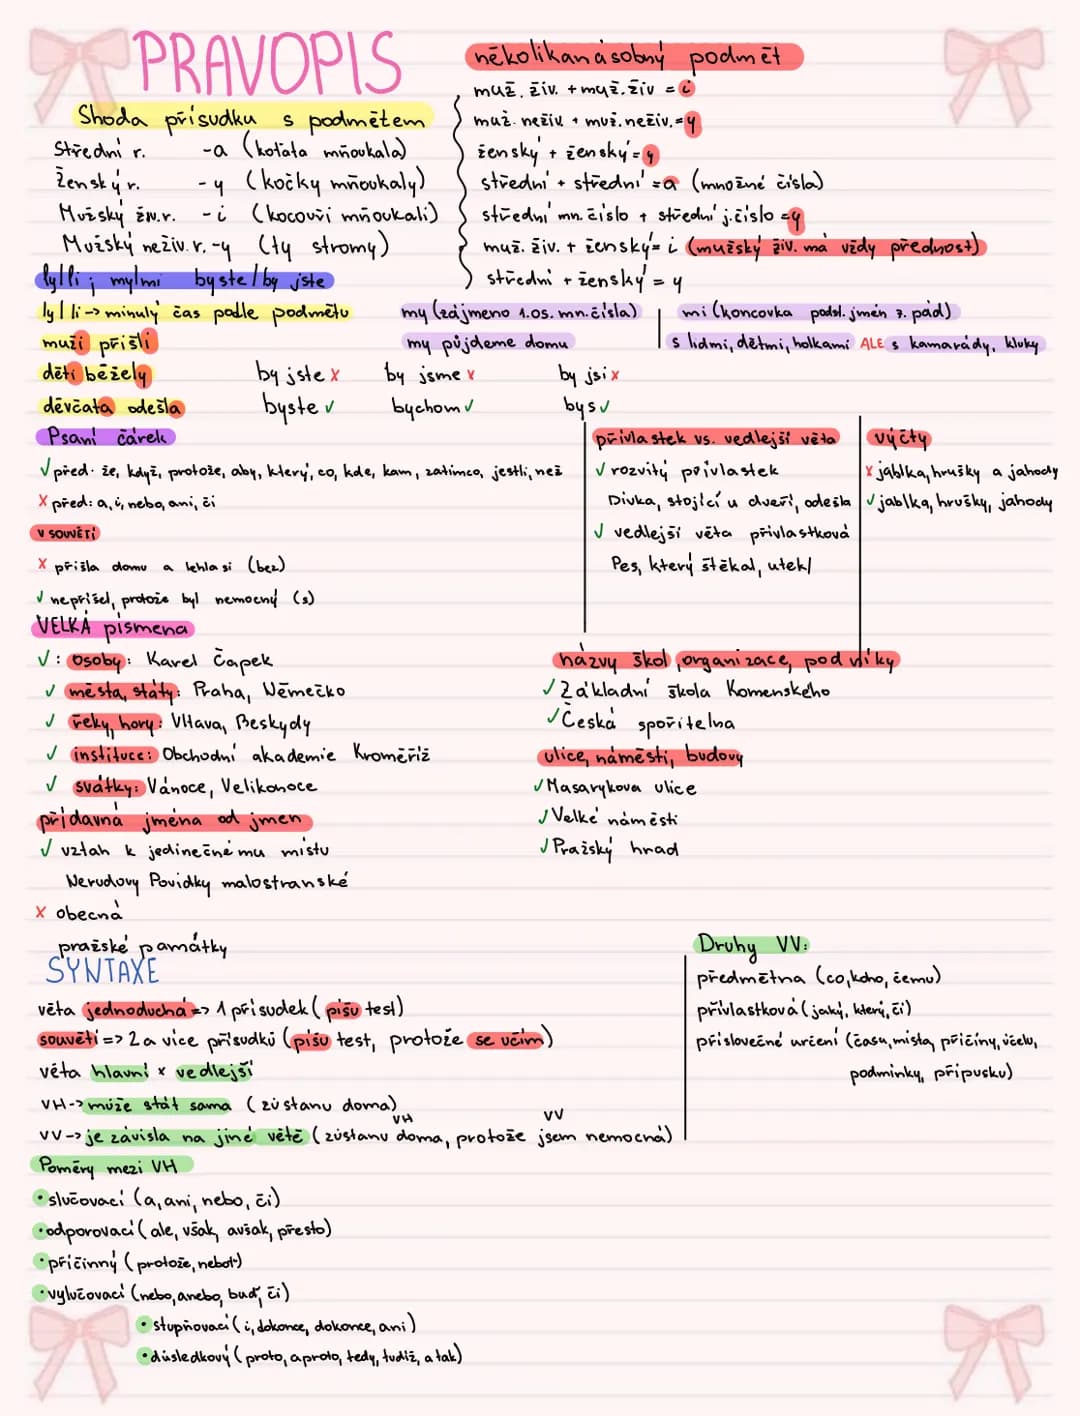 PRAVOPIS
Shoda přísudku s podmětem
Střední r. -a (koťata mňoukala)
Ženský r. -y (kočky mňoukaly)
Mužský živ.r. -i (kocouři mňoukali)
Mužský neživ.r. -y (ty stromy)
několikanásobný podmět
muž. živ. + muž. živ = i
muž. neživ + muž. neživ. = y
ženský + ženský = y
střední + střední = a (množné čísla)
střední mn. číslo + střední j. číslo = y
muž. živ. + ženský = i (mužský živ. má vždy přednost)
střední + ženský = y
ly/li ; my/mi byste/by jste
ly/li -> minulý čas podle podmětu
muži přišli
děti běžely
děvčata odešla
my (zájmeno 1.os. mn. čísla)
my půjdeme domu
mi (koncovka podst. jmen 7. pád)
s lidmi, dětmi, holkami ALE s kamarády, kluky
by jste x by jsme x by jsi x
byste ✓ bychom ✓ bys ✓
Psaní čárek
✓ před: že, když, protože, aby, který, co, kde, kam, zatímco, jestli, než
x před: a, i, nebo, ani, či
v souvětí
x přišla domu a lehla si (bez)
✓ nepřišel, protože byl nemocný (s)
přívlastek vs. vedlejší věta
✓ rozvitý přívlastek
Dívka, stojící u dveří, odešla
✓ vedlejší věta přívlastková
Pes, který štěkal, utekl
výčty
x jablka, hrušky a jahody
✓ jablka, hrušky, jahody
VELKÁ písmena
✓: osoby: Karel Čapek
✓ města, státy: Praha, Německo
✓ řeky, hory: Vltava, Beskydy
✓ instituce: Obchodní akademie Kroměříž
✓ svátky: Vánoce, Velikonoce
přídavná jména od jmen
✓ vztah k jedinečnému místu
Nerudovy Povídky malostranské
x obecná
pražské památky
názvy škol, organizace, podniky
✓ Základní škola Komenského
✓ Česká spořitelna
ulice, náměstí, budovy
✓ Masarykova ulice
✓ Velké náměstí
✓ Pražský hrad
SYNTAXE
věta jednoduchá => 1 přísudek (píšu test)
souvětí => 2 a více přísudků (píšu test, protože se učím)
věta hlavní x vedlejší
VH -> může stát sama (zůstanu doma)
VH VV
VV -> je závislá na jiné větě (zůstanu doma, protože jsem nemocná)
Druhy VV:
předmětná (co, koho, čemu)
přívlastková (jaký, který, čí)
příslovečné určení (času, místa, příčiny, účelu,
podmínky, přípusku)
Poměry mezi VH
• slučovací (a, ani, nebo, či)
• odporovací (ale, však, avšak, přesto)
• příčinný (protože, neboť)
• vylučovací (nebo, anebo, buď, či)
• stupňovací (i, dokonce, dokonce, ani)
• důsledkový (proto, a proto, tedy, tudíž, a tak)